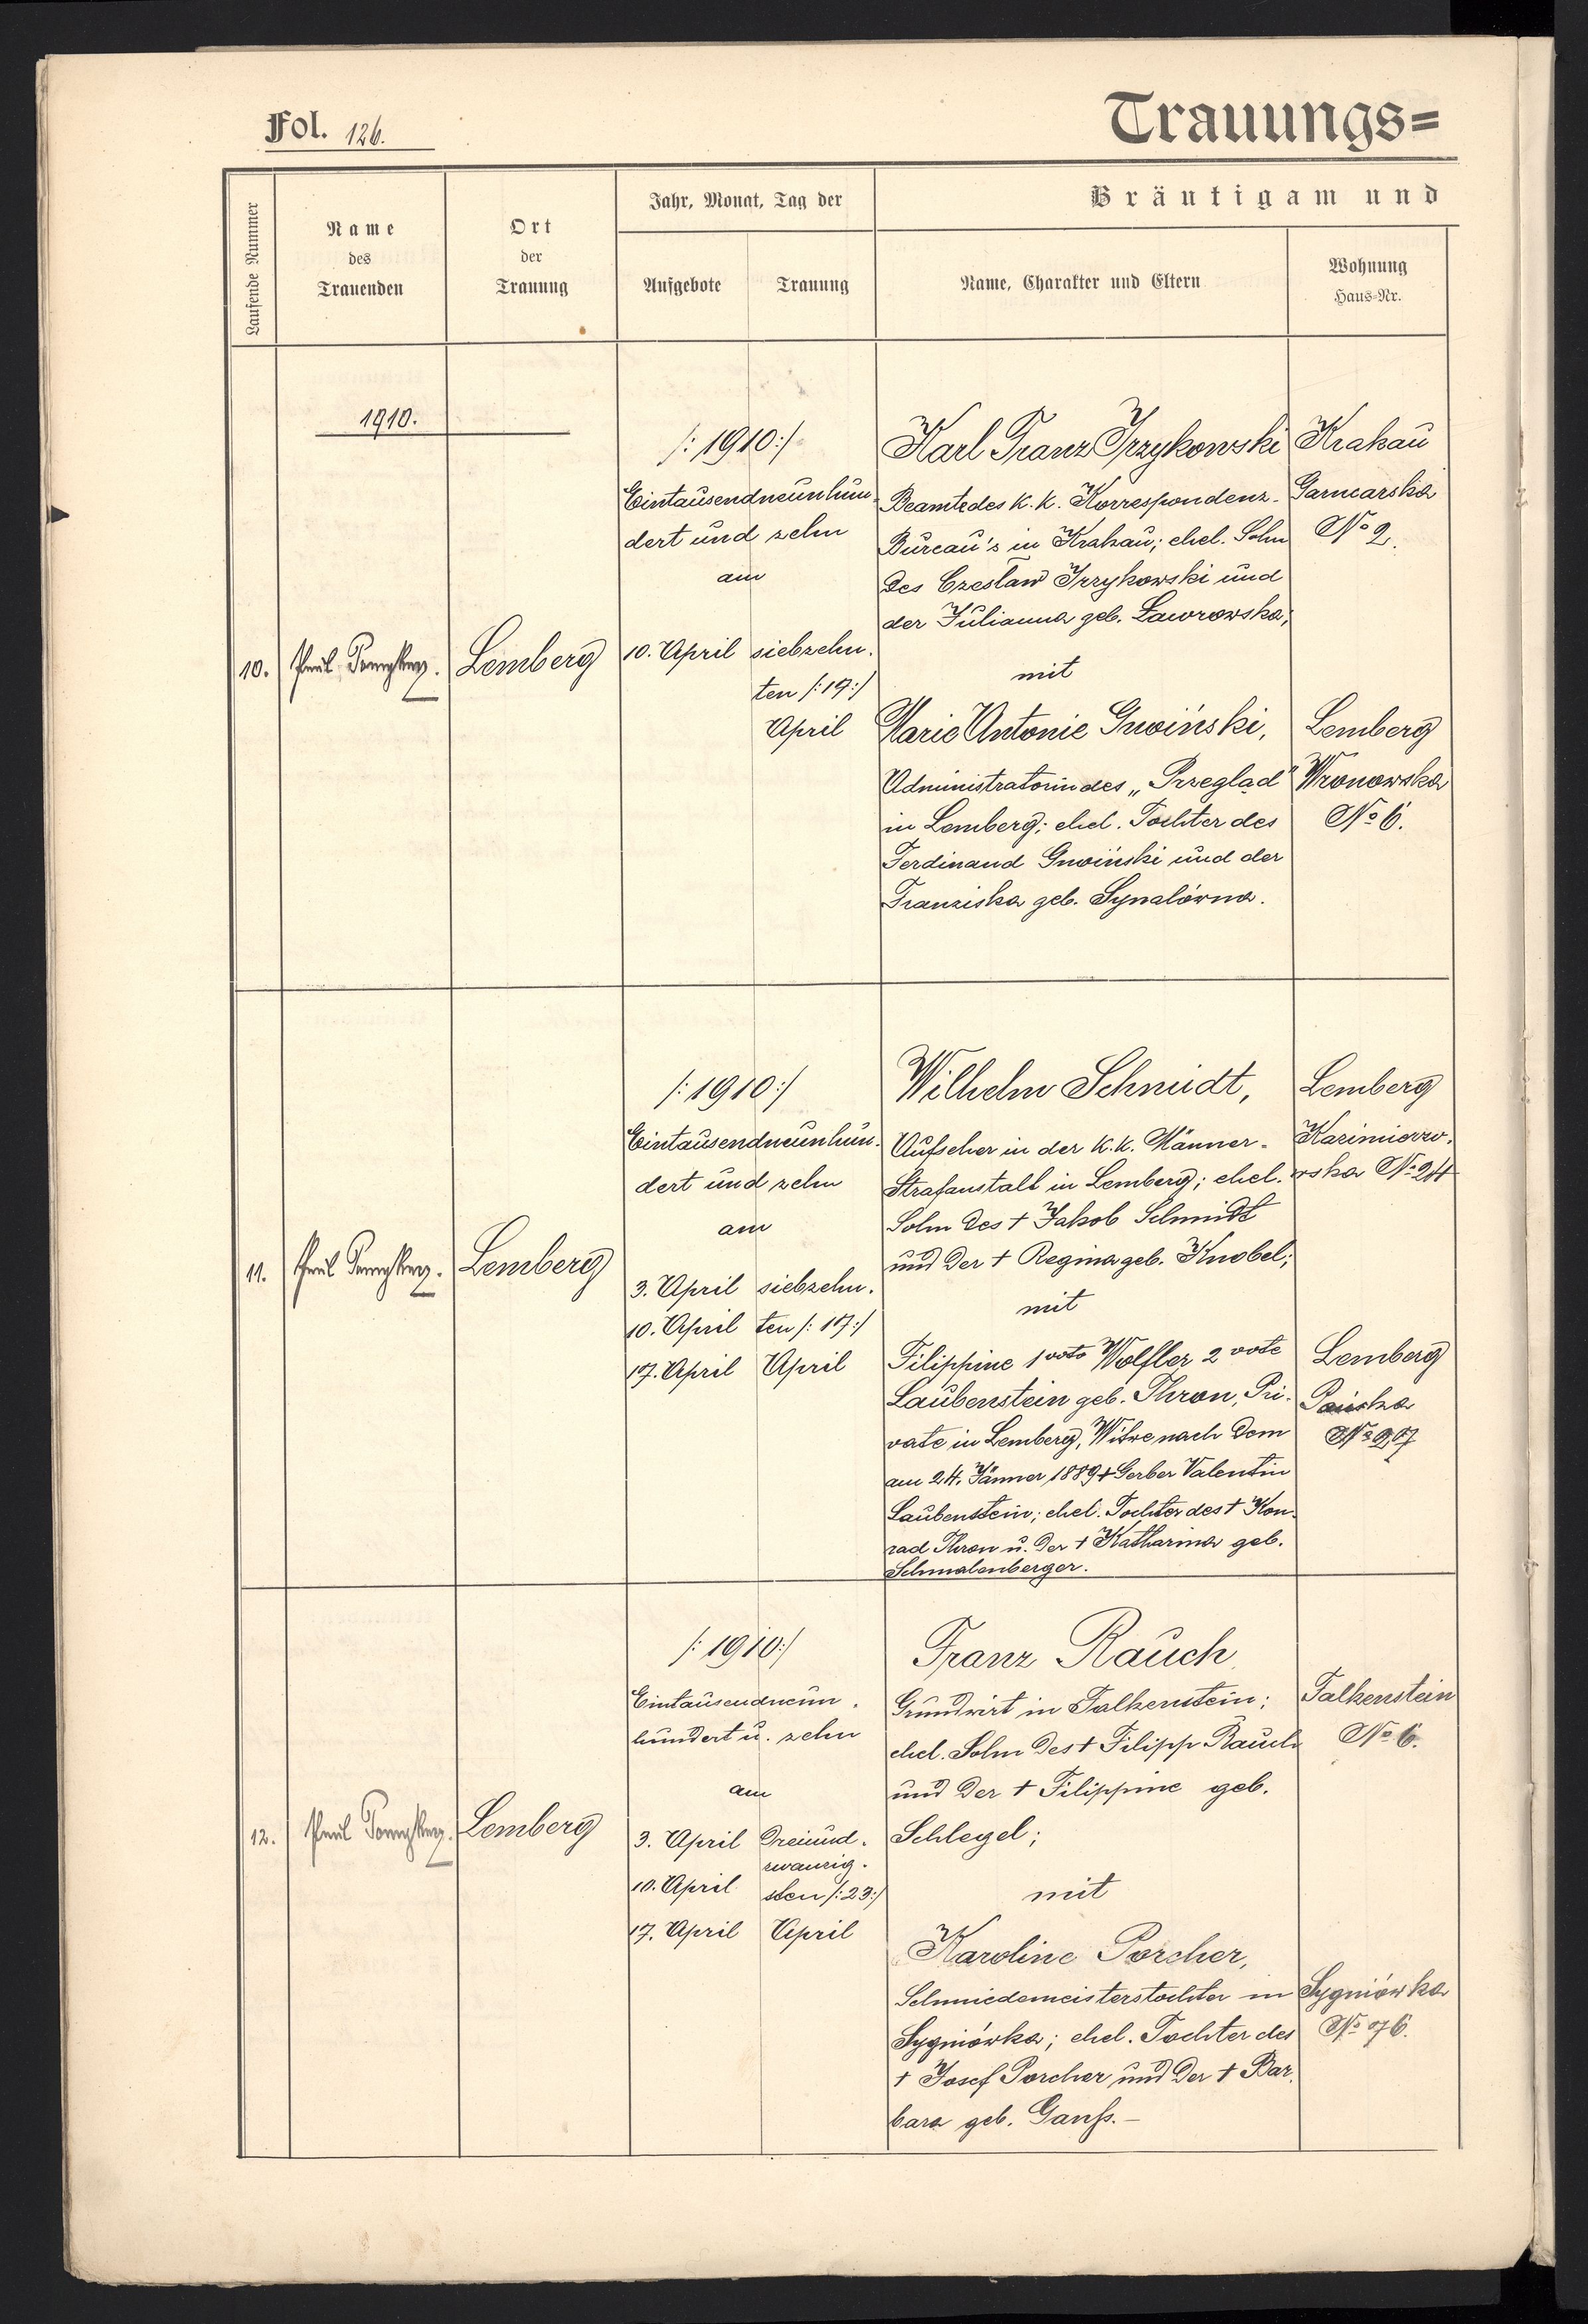 Fol. 126.
Trauungs=
Laufende Nummer
Name
des
Trauenden
Ort
der
Trauung
Jahr, Monat, Tag der
Aufgebote
Trauung
Bräutigam und
Name, Charakter und Eltern
Wohnung
Haus-Nr.
1910.
10.
Lemberg
/: 1910:/
Eintausendneunhun-
dert und zehn
am
10. April
siebzehn-
ten /:17:/
April
Karl Franz Irzykowski
Beamte des k. k. Korrespondenz-
Bureau's in Krakau; ehel. Sohn
des Czesław Irzykowski und
der Julianna geb. Ławrowska;
mit
Marie Antonie Gnoiński,
Administratorin des „Przegląd"
in Lemberg; ehel. Tochter des
Ferdinand Gnoiński und der
Franziska geb. Synalówna.
Krakau
Garncarska
No 2.
Lemberg
Wronowska
No 6.
11.
Lemberg
/: 1910:/
Eintausendneunhun-
dert und zehn
am
3. April
10. April
17. April
siebzehn-
ten /: 17:/
April
Wilhelm Schmidt,
Aufseher in der k. k. Männer-
Strafanstalt in Lemberg; ehel.
Sohn des † Jakob Schmidt
und der † Regina geb. Knobel;
mit
Filippine 1 voto Wolfler 2 vote
Laubenstein geb. Thron, Pri-
vate in Lemberg, Witwe nach dem
am 24. Jänner 1889 † Gerber Valentin
Laubenstein; ehel. Tochter des † Kon-
rad Thron u. der † Katharina geb.
Schmalenberger.
Lemberg
Kazimierzo-
wska No 24
Lemberg
No
12.
Lemberg
/: 1910:/
Eintausendneun-
hundert u. zehn
am
3. April
10. April
17. April
dreiund-
zwanzig-
sten /:23:/
April
Franz Rauch
Grundwirt in Falkenstein;
ehel. Sohn des † Filipp Rauch
und der † Filippine geb.
Schlegel;
mit
Karoline Porcher,
Schmiedemeisterstochter in
Sygniówka; ehel. Tochter des
† Josef Porcher und der † Bar-
bara geb. Ganß.-
Falkenstein
No 6.
Sygniówka
No 76.